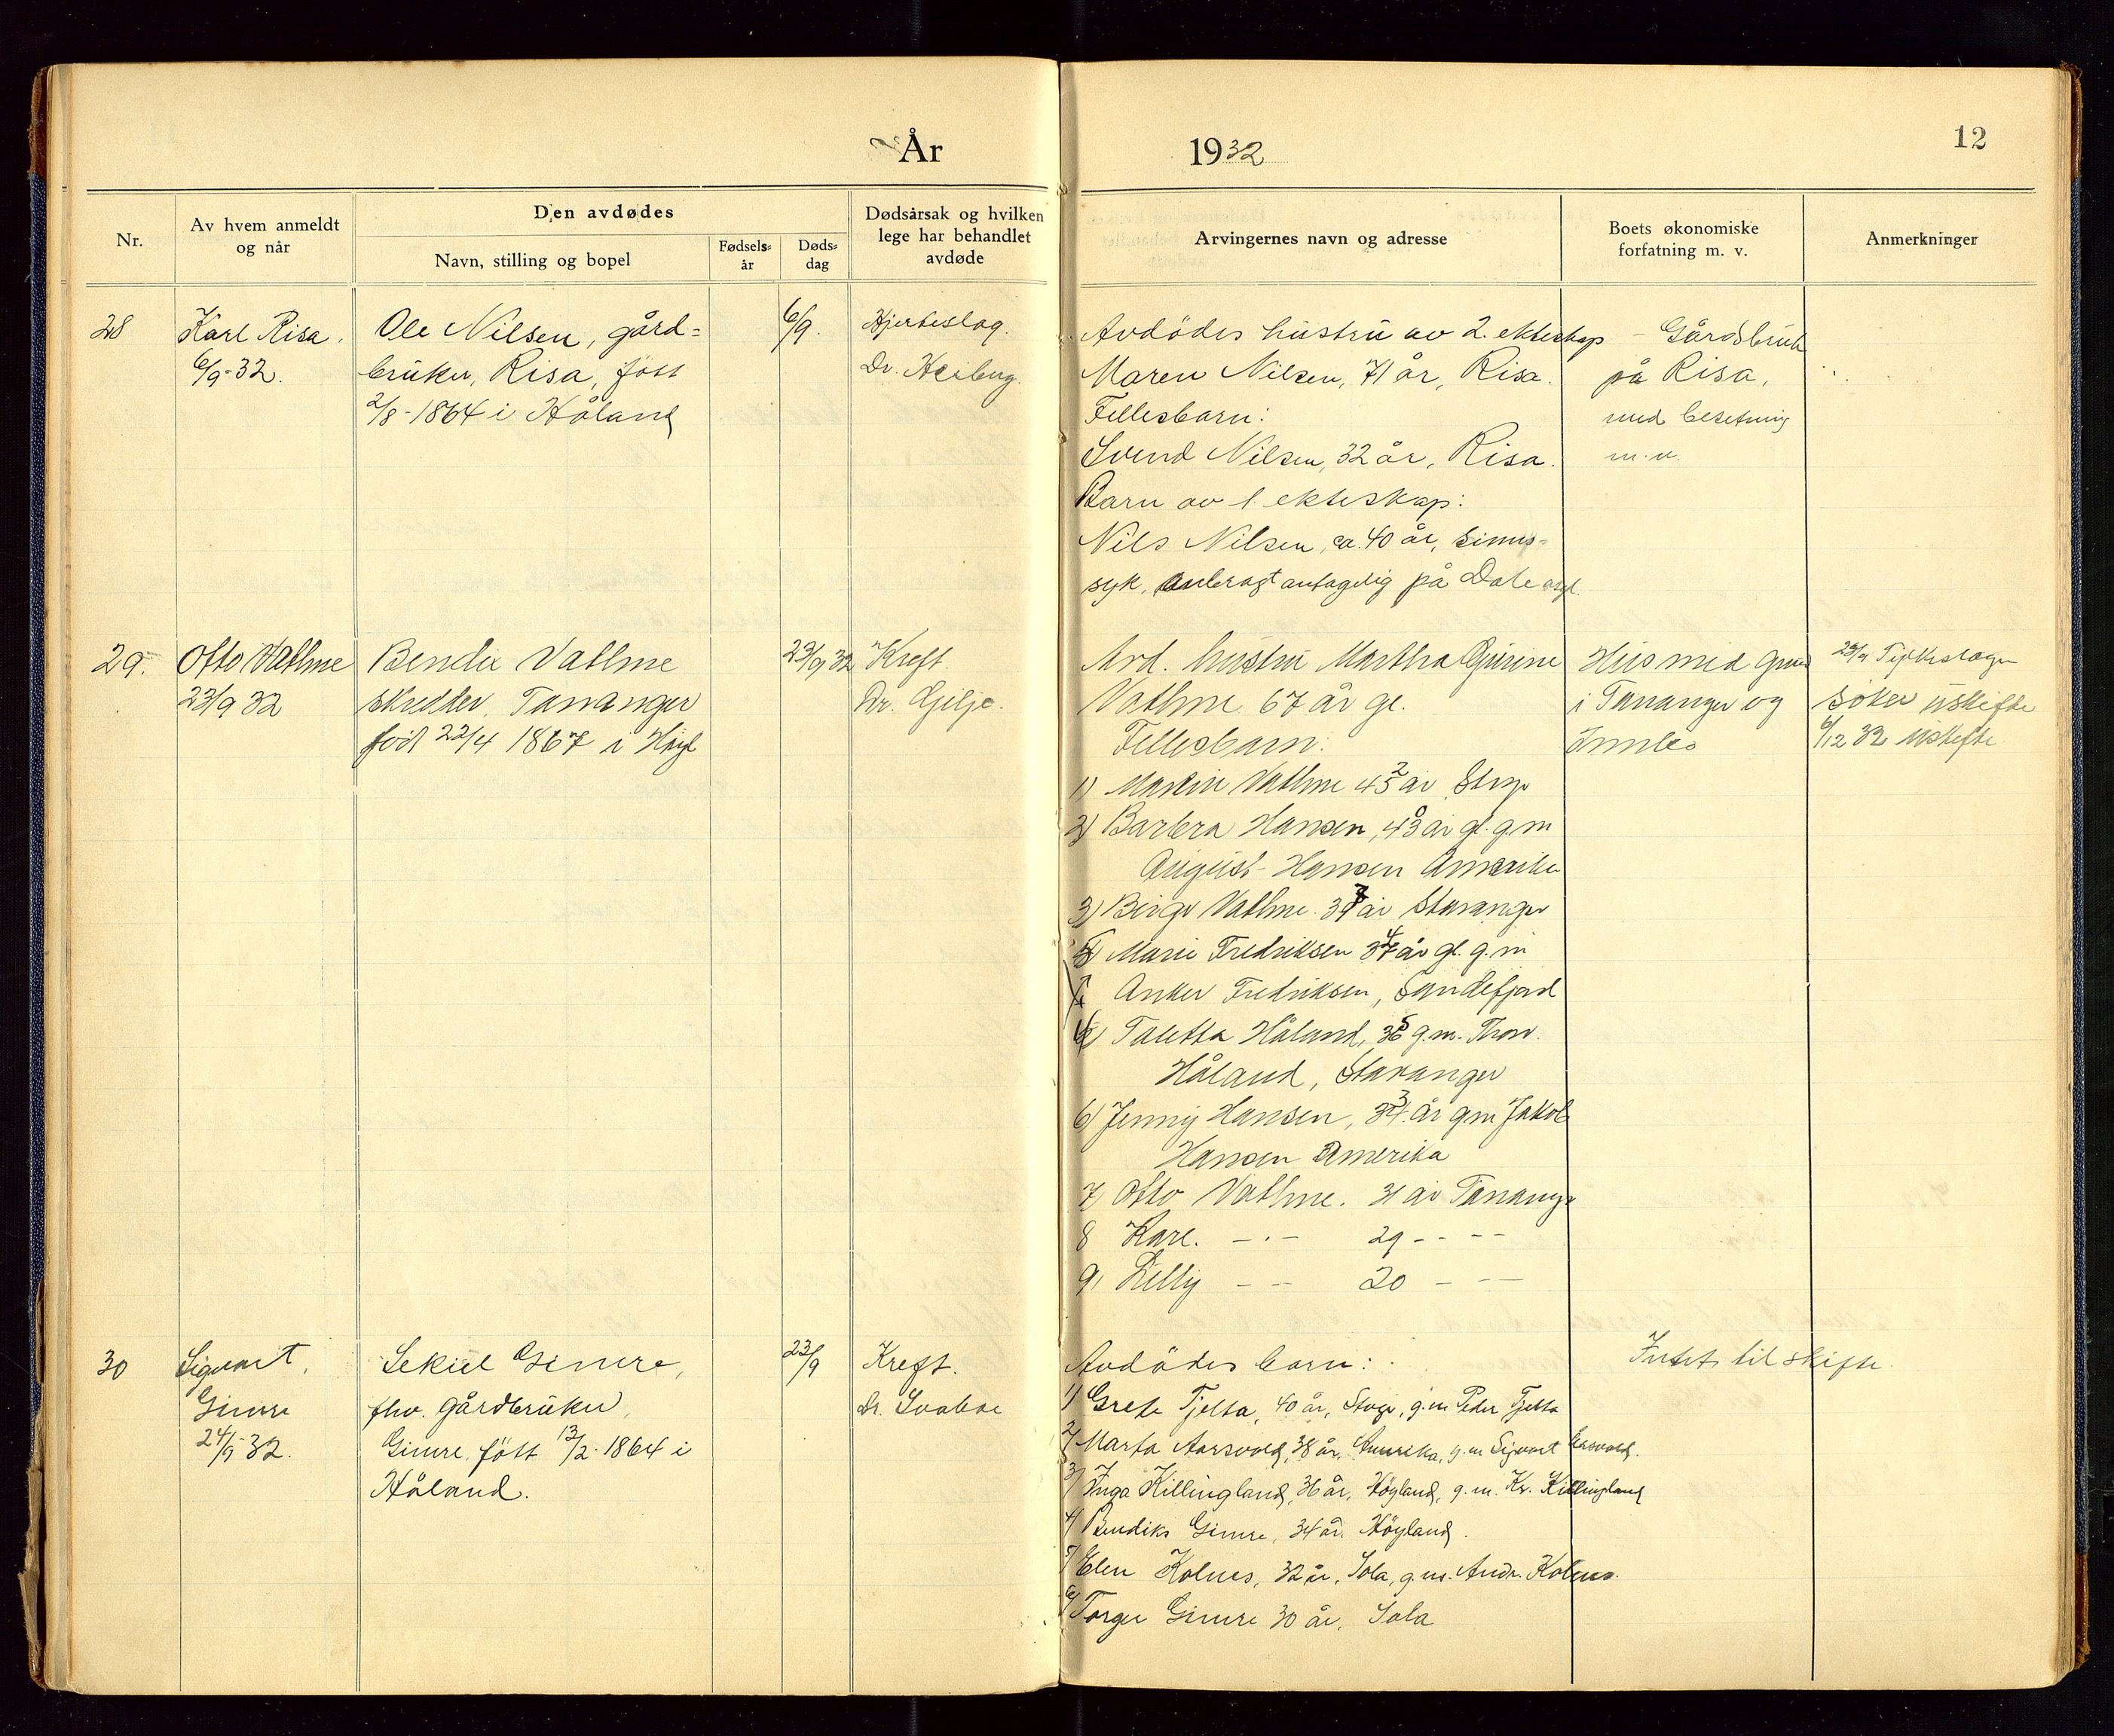 År
1932
12
Nr.
Av hvem anmeldt
og når
Den avdødes
Navn, stilling og bopel
Fødsels-
år
Døds-
dag
Dødsårsak og hvilken
lege har behandlet
avdøde
Arvingernes navn og adresse
Boets økonomiske
forfatning m. v.
Anmerkninger
28
Karl Risa.
6/9-32.
Ole Nilsen, gård-
bruker, Risa, født
2/8-1864 i Håland
6/9.
Hjerteslag.
Dr. Heiberg.
Avdödes hustru av 2. ekteskap
Maren Nilsen, 71 år, Risa.
Fellesbarn:
Svend Nilsen, 32 år, Risa.
Barn av 1 ekteskap:
Nils Nilsen, ca. 40 år, sinns-
syk, anbragt antagelig på Dale asyl.
- Gårdsbruk
på Risa,
med besetning
m. v.
29.
Otto Vathne
23/9 32
Vathne
skredder, Tananger
född 22/4 1867 i
23/9 32
Kreft.
Dr. Gilje.
Avd. hustru Martha Gurine
Vathne 67 år gl.
Fellesbarn:
1) Vathne år
2) Barbra Hansen, år gl. g.m
August Hansen Amerika
3) Vathne år Stavanger
Marie Fredriksen år gl. g.m
Anker Fredriksen, Sandefjord
Taletta Håland, g.m. Thorv.
Håland, Stavanger
6) Jenny Hansen, år gm Jakob
Hansen Amerika
7) Otto Vathne. 31 år Tananger
8 Karl. - . - 29 - - - -
9) Lelly - - 20 - - -
Hus med grund
i Tananger og
Innbo
söker uskifte
6/12 32 uskifte
30
Sigvart
Gimre
24/9-32.
Sekiel Gimre,
fhv. gårdbruker,
Gimre, født 13/2-1864 i
Håland.
23/9
Kreft.
Dr.
Avdödes barn:
1) Grete Tjelta, 40 år, Stvgr, g.m Peder Tjelta
2) Marta Aarsvold, 38 år, Amerika, g.m Sigvart Aarsvold.
3) Inga Killingland, 36 år, Höyland, g.m. Kr. Killingland
4) Bendiks Gimre, 34 år. Höyland.
5) Elen Kolnes, 32 år, Sola, g.m. Andr. Kolnes.
6) Torger Gimre 30 år, Sola
Intet til skifte.